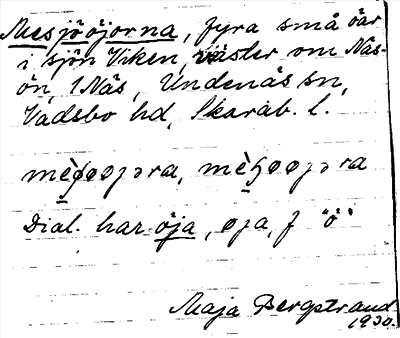 Mesjööjorna, fyra små öar
i sjön Viken, väster om Näs-
ön, 1 Näs, Undenäs sn,
Vadsbo hd, Skarab. l.
Dial. har öja, øja, f "ö"
Maja Bergstrand
1930.